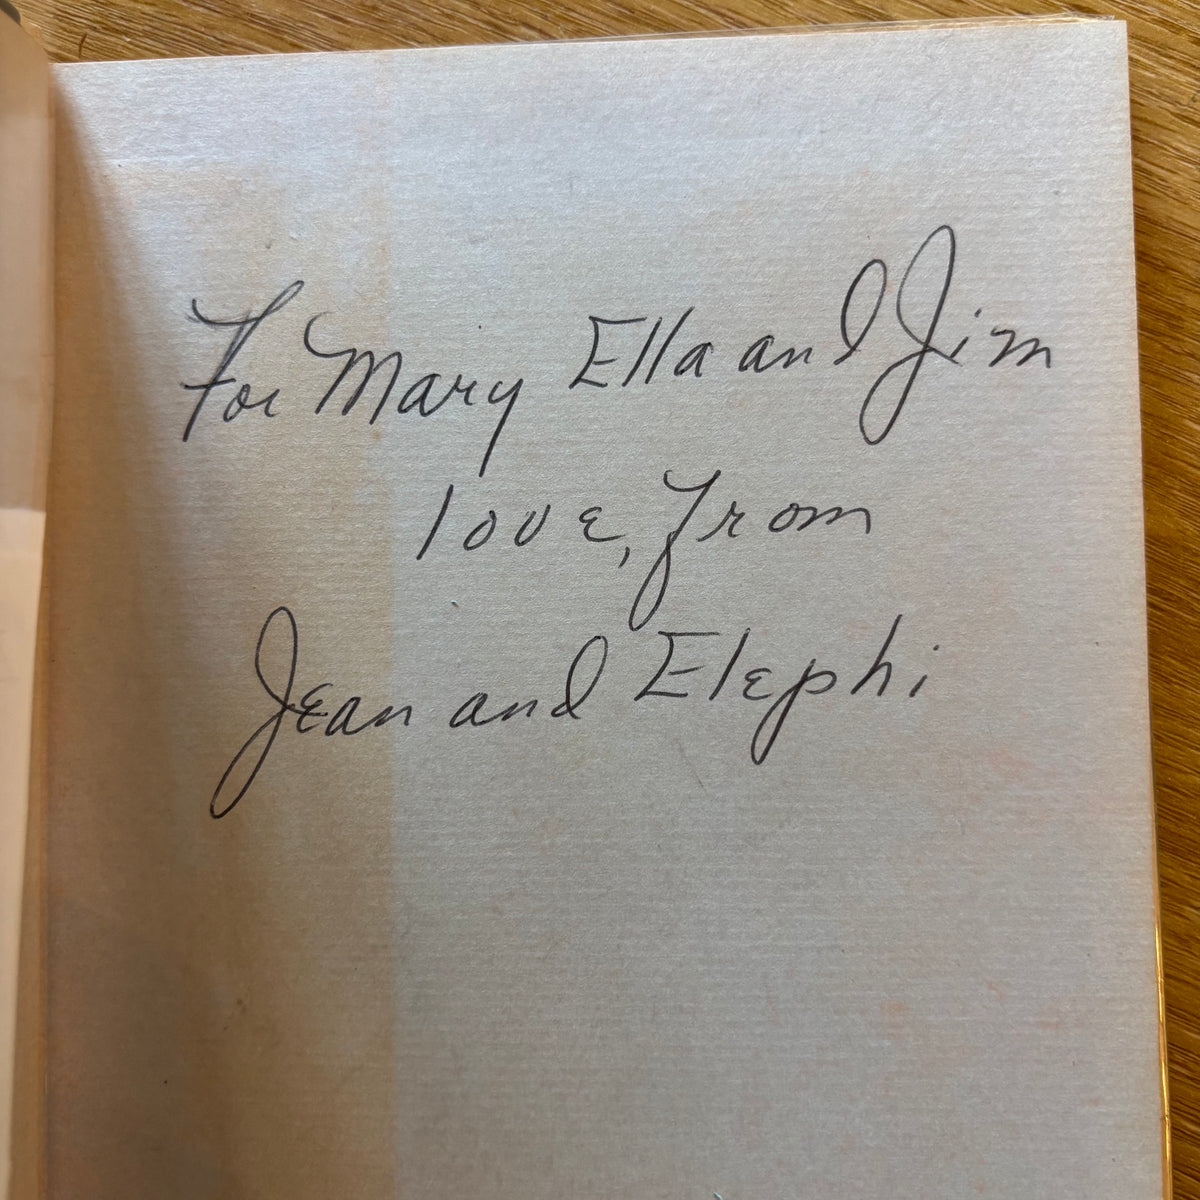 For Mary Ella and Jim
love, from
Jean and Elephi